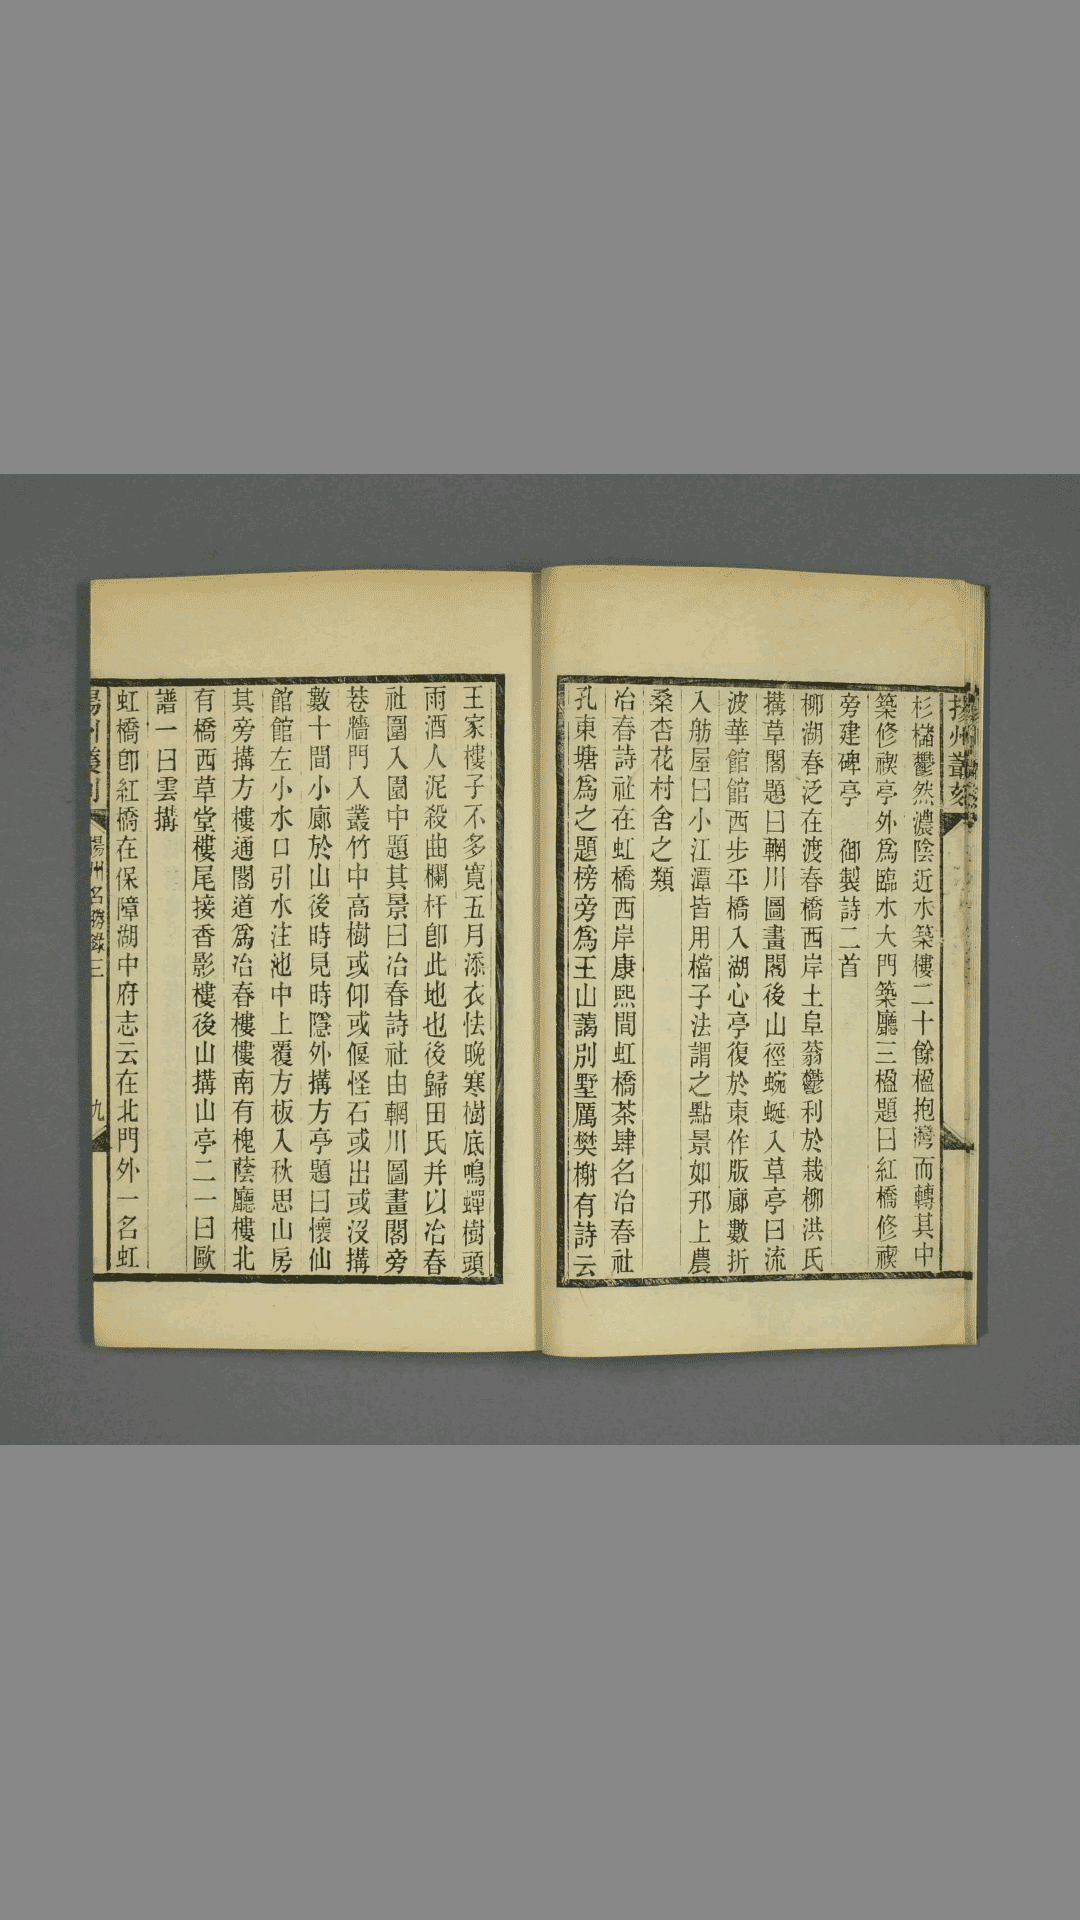 揚州叢刻
杉櫧鬱然濃陰近水築樓二十餘楹抱灣而轉其中
築修禊亭外爲臨水大門築廳三楹題曰紅橋修禊
旁建碑亭　御製詩二首
柳湖春泛在渡春橋西岸土阜蓊鬱利於栽柳洪氏
搆草閣題曰輞川圖畫閣後山徑蜿蜒入草亭曰流
波華館館西步平橋入湖心亭復於東作版廊數折
入舫屋曰小江潭皆用檔子法謂之點景如邗上農
桑杏花村舍之類
冶春詩社在虹橋西岸康熙間虹橋茶肆名冶春社
孔東塘爲之題榜旁爲王山藹別墅厲樊榭有詩云
王家樓子不多寬五月添衣怯晚寒樹底鳴蟬樹頭
雨酒人泥殺曲欄杆卽此地也後歸田氏并以冶春
社圍入園中題其景曰冶春詩社由輞川圖畫閣旁
卷牆門入叢竹中高樹或仰或偃怪石或出或沒搆
數十間小廊於山後時見時隱外搆方亭題曰懷仙
館館左小水口引水注池中上覆方板入秋思山房
其旁搆方樓通閣道爲冶春樓樓南有槐蔭廳樓北
有橋西草堂樓尾接香影樓後山搆山亭二一曰歐
譜一曰雲搆
虹橋卽紅橋在保障湖中府志云在北門外一名虹
揚州叢刻　揚州名勝錄三　九